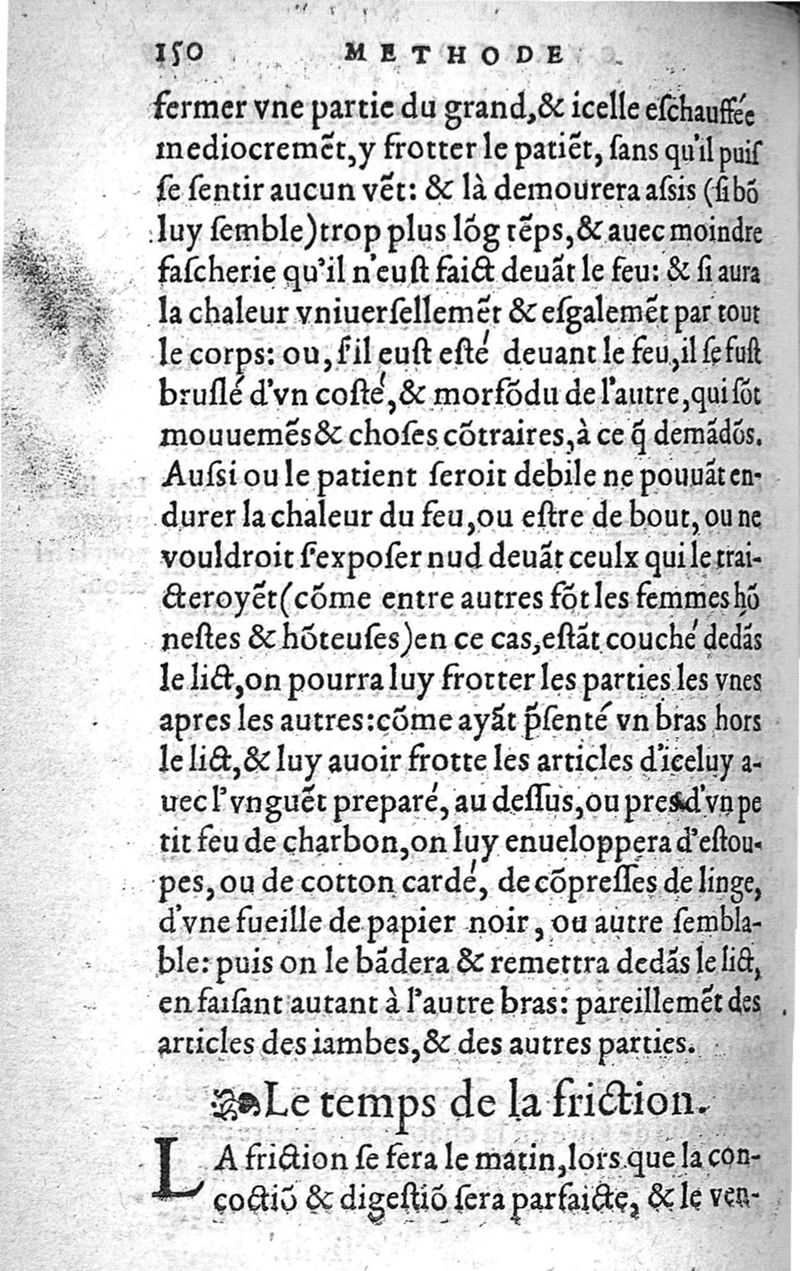 150 METHODE
fermer vne partie du grand,& icelle eſchauffée
mediocremẽt,y frotter le patiẽt, ſans qu'il puiſ
ſe ſentir aucun vẽt: & là demourera aſsis (ſi bõ
luy ſemble)trop plus lõg tẽps,& auec moindre
faſcherie qu'il n'euſt faict deuãt le feu: & ſi aura
la chaleur vniuerſellemẽt & eſgalemẽt par tout
le corps: ou, ſ'il euſt eſté deuant le feu,il ſe fuſt
bruſlé d'vn coſté,& morfõdu de l'autre,qui ſõt
mouuemẽs& choſes cõtraires,à ce q̃ demãdõs.
Auſsi ou le patient ſeroit debile ne pouuãt en-
durer la chaleur du feu,ou eſtre de bout, ou ne
vouldroit ſ'expoſer nud deuãt ceulx qui le trai-
cteroyẽt(cõme entre autres fõt les femmes hõ
neſtes & hõteuſes)en ce cas,eſtãt couché dedãs
le lict,on pourra luy frotter les parties les vnes
apres les autres:cõme ayãt p̃ſenté vn bras hors
le lict,& luy auoir frotte les articles d'iceluy a-
uec l'vnguẽt preparé, au deſſus,ou pres d'vn pe
tit feu de charbon,on luy enueloppera d'eſtou-
pes, ou de cotton cardé, de cõpreſſes de linge,
d'vne fueille de papier noir, ou autre ſembla-
ble: puis on le bãdera & remettra dedãs le lict,
en faiſant autant à l'autre bras: pareillemẽt des
articles des iambes,& des autres parties.
Le temps de la friction.
LA friction ſe fera le matin,lors que la con-
coctiõ & digeſtiõ ſera parfaicte, & le ven-